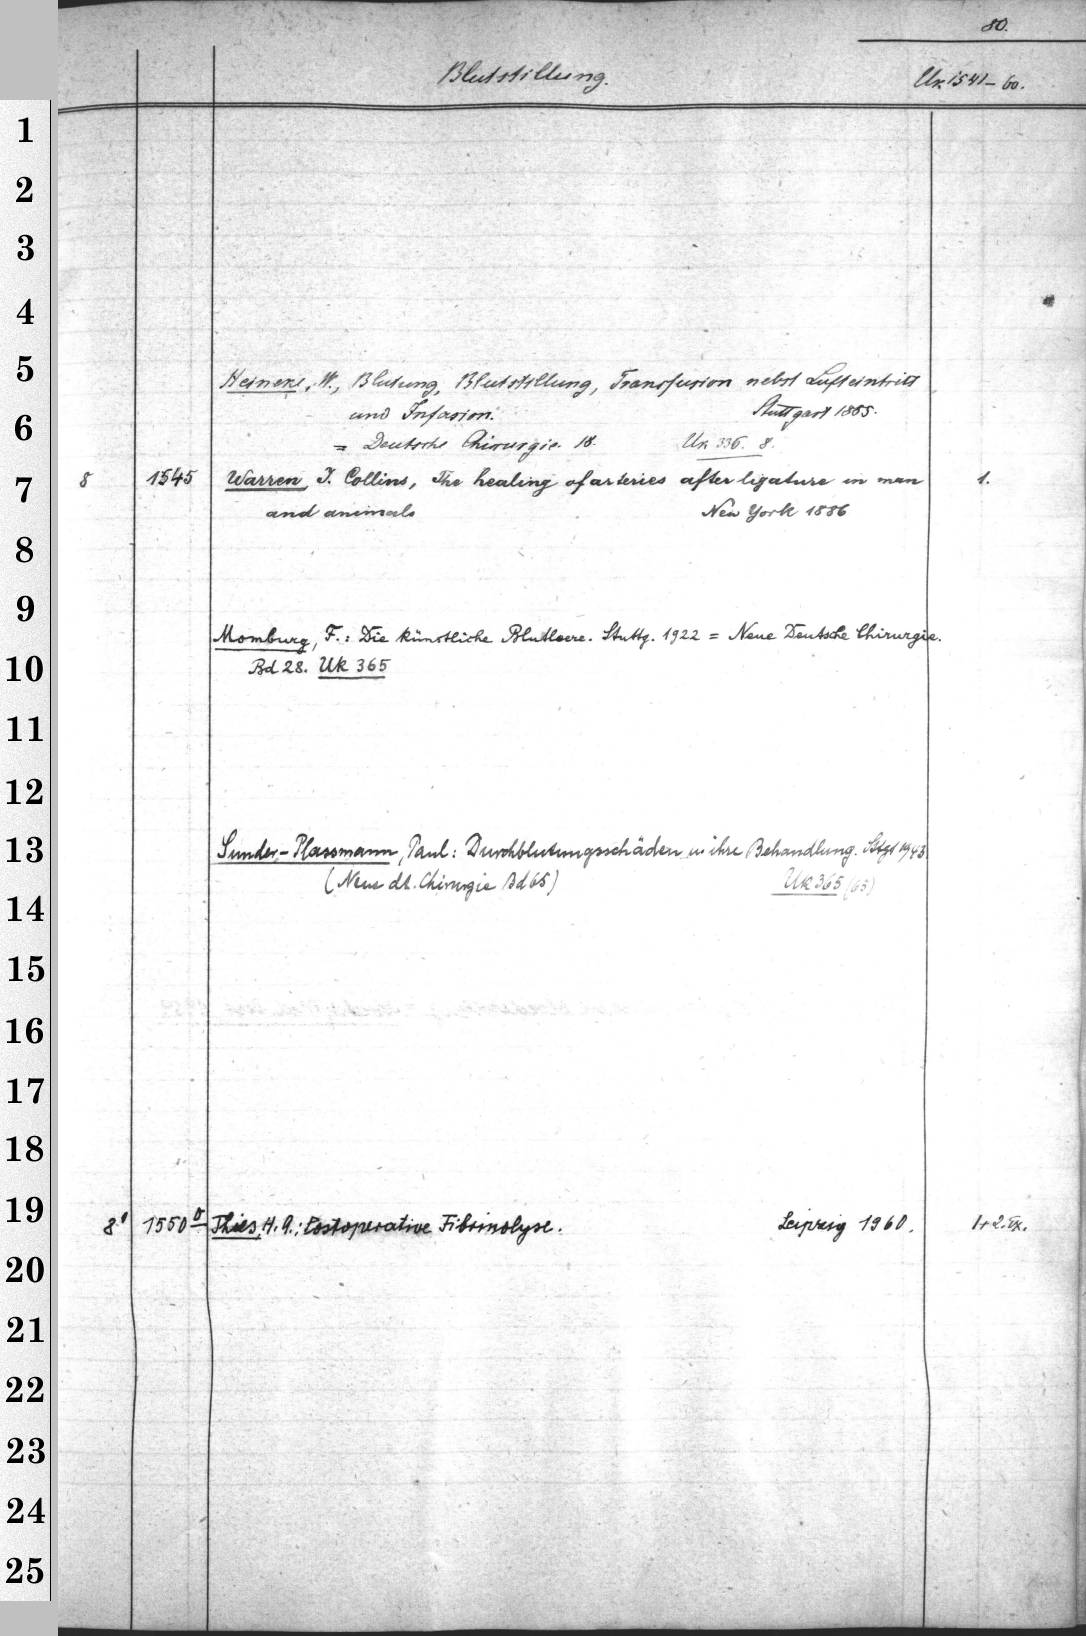 80.
Blutstillung. Uk 1541-60.
1
2
3
4
5
Heineke, W., Blutung, Blutstillung, Transfusion nebst Lufteintritt
und Infusion. Stuttgart 1885.
6
= Deutsche Chirurgie. 18. Uk 336. 8.
7
8 1545 Warren, J. Collins, The healing of arteries after ligature in man 1.
and animals New York 1886
8
9
Momburg, F.: Die künstliche Blutleere. Stuttg. 1922 = Neue Deutsche Chirurgie.
10
Bd 28. Uk 365
11
12
13
Sunder-Plassmann, Paul: Durchblutungsschäden u ihre Behandlung. Stgt 1943
(Neue dt. Chirurgie Bd 65) Uk 365 (65)
14
15
16
17
18
19
8° 1550 Thies, H. A.: Postoperative Fibrinolyse. Leipzig 1960. 1+2. Ex.
20
21
22
23
24
25